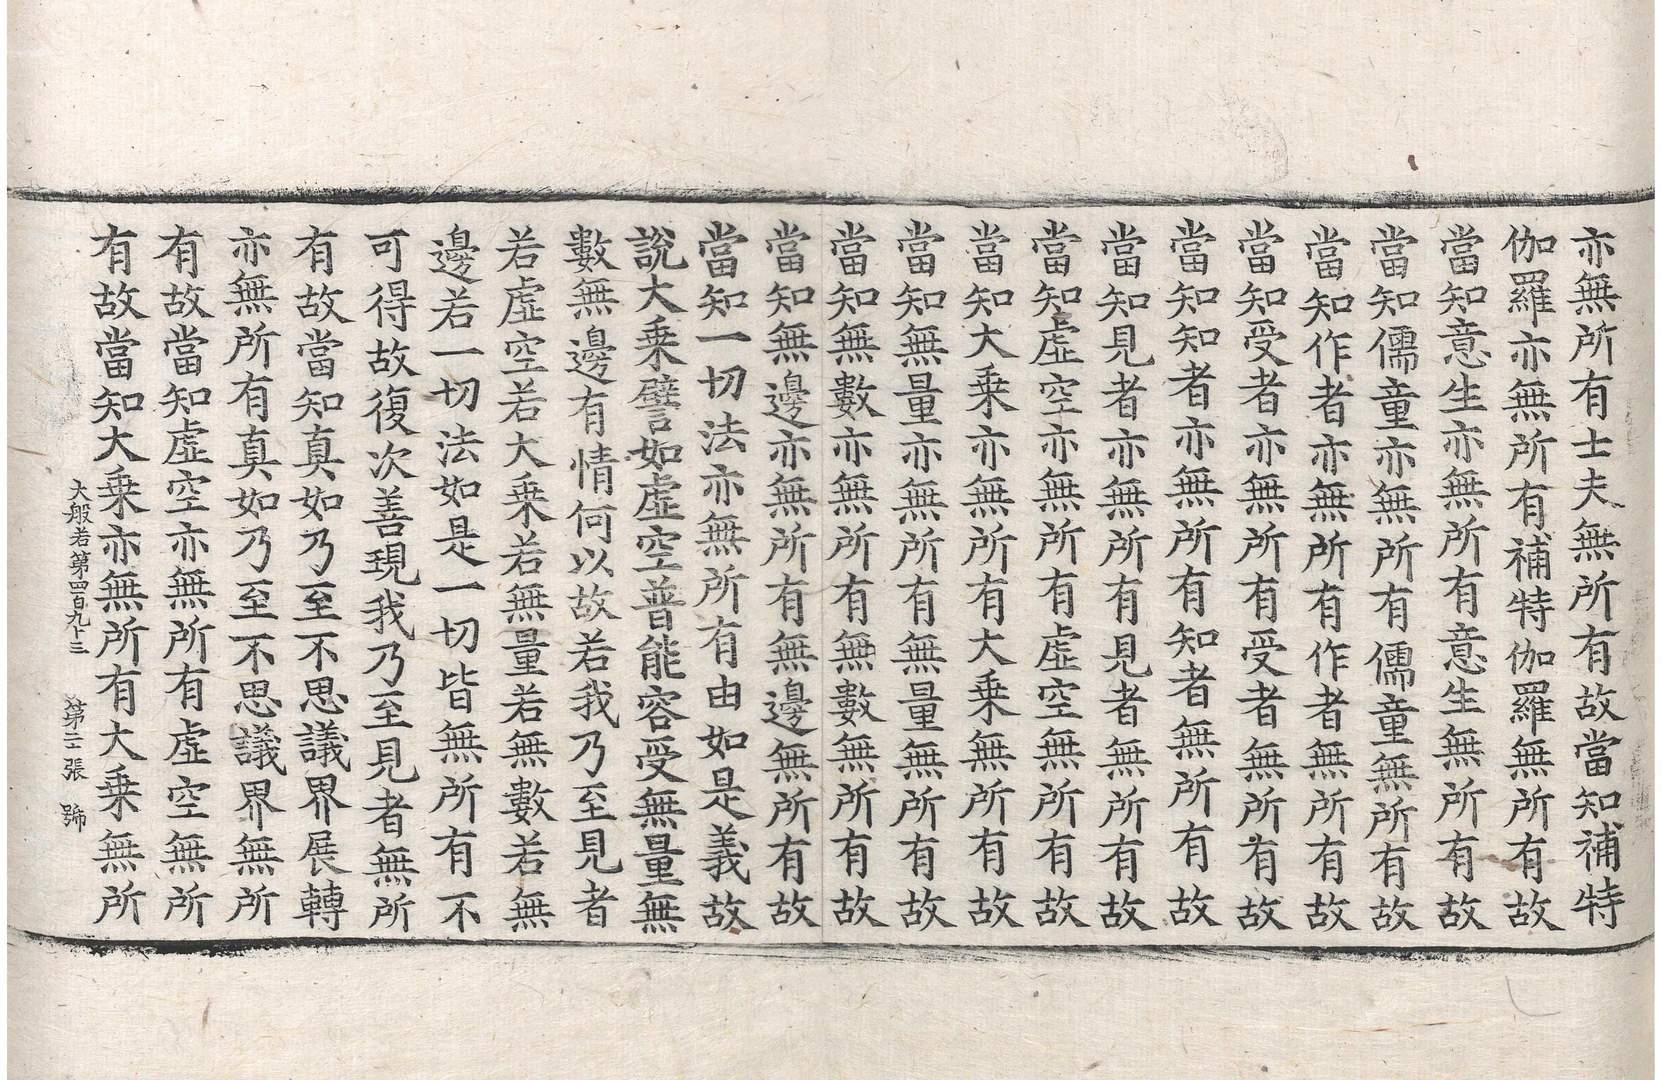 亦無所有士夫無所有故當知補特
伽羅亦無所有補特伽羅無所有故
當知意生亦無所有意生無所有故
當知儒童亦無所有儒童無所有故
當知作者亦無所有作者無所有故
當知受者亦無所有受者無所有故
當知知者亦無所有知者無所有故
當知見者亦無所有見者無所有故
當知虛空亦無所有虛空無所有故
當知大乗亦無所有大乗無所有故
當知無量亦無所有無量無所有故
當知無數亦無所有無數無所有故
當知無邊亦無所有無邊無所有故
當知一切法亦無所有由如是義故
說大乗譬如虛空普能容受無量無
數無邊有情何以故若我乃至見者
若虛空若大乗若無量若無數若無
邊若一切法如是一切皆無所有不
可得故復次善現我乃至見者無所
有故當知真如乃至不思議界展轉
亦無所有真如乃至不思議界無所
有故當知虛空亦無所有虛空無所
有故當知大乗亦無所有大乗無所
大般若第四百九十三 第三張 號